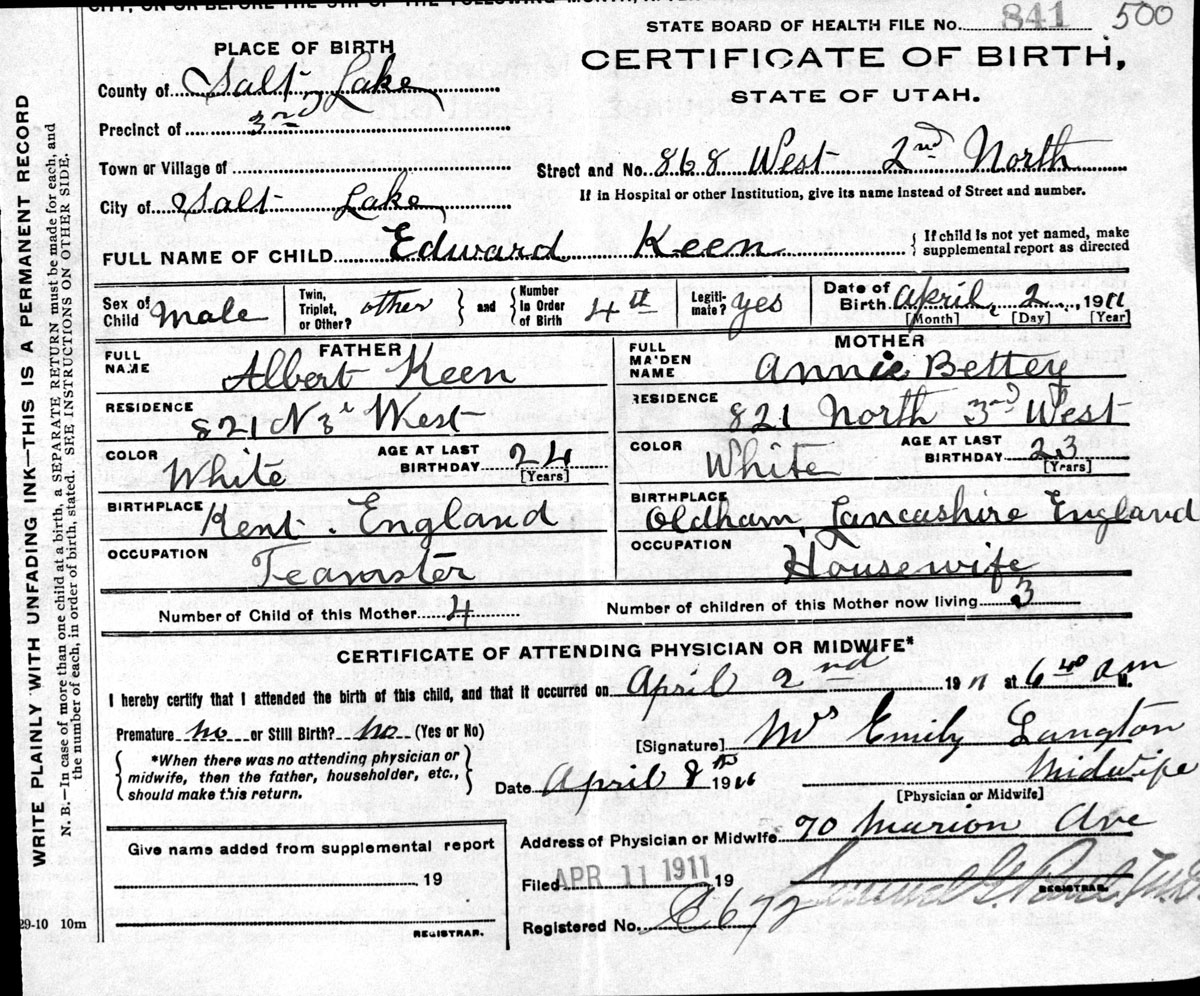 STATE BOARD OF HEALTH FILE No. 841 500
PLACE OF BIRTH
CERTIFICATE OF BIRTH,
STATE OF UTAH.
County of Salt Lake
Precinct of 3rd
Town or Village of
Street and No. 868 West 2nd North
If in Hospital or other Institution, give its name instead of Street and number.
City of Salt Lake
FULL NAME OF CHILD Edward Keen
{ If child is not yet named, make supplemental report as directed
Sex of Child Male
Twin, Triplet, or Other? other } and { Number in Order of Birth 4th
Legitimate? yes
Date of Birth April 2 1911
[Month] [Day] [Year]
FATHER
FULL NAME Albert Keen
RESIDENCE 821 N 3r West
COLOR White
AGE AT LAST BIRTHDAY 24
[Years]
BIRTHPLACE Kent. England
OCCUPATION Teamster
MOTHER
FULL MAIDEN NAME Annie Bettey
RESIDENCE 821 North 3rd West
COLOR White
AGE AT LAST BIRTHDAY 23
[Years]
BIRTHPLACE Oldham, Lancashire England
OCCUPATION Housewife
Number of Child of this Mother 4
Number of children of this Mother now living 3
CERTIFICATE OF ATTENDING PHYSICIAN OR MIDWIFE*
I hereby certify that I attended the birth of this child, and that it occurred on April 2nd 1911 at 6 40 am M.
Premature no or Still Birth? no (Yes or No)
{ *When there was no attending physician or midwife, then the father, householder, etc., should make this return. }
[Signature] Mrs Emily Langton
Midwife
[Physician or Midwife]
Date April 8th 19
Address of Physician or Midwife 70 Marion Ave
Give name added from supplemental report
19
REGISTRAR.
Filed APR 11 1911 19
REGISTRAR.
Registered No. C 672
29-10 10m
WRITE PLAINLY WITH UNFADING INK—THIS IS A PERMANENT RECORD
N. B.—In case of more than one child at a birth, a SEPARATE RETURN must be made for each, and
the number of each, in order of birth, stated. SEE INSTRUCTIONS ON OTHER SIDE.